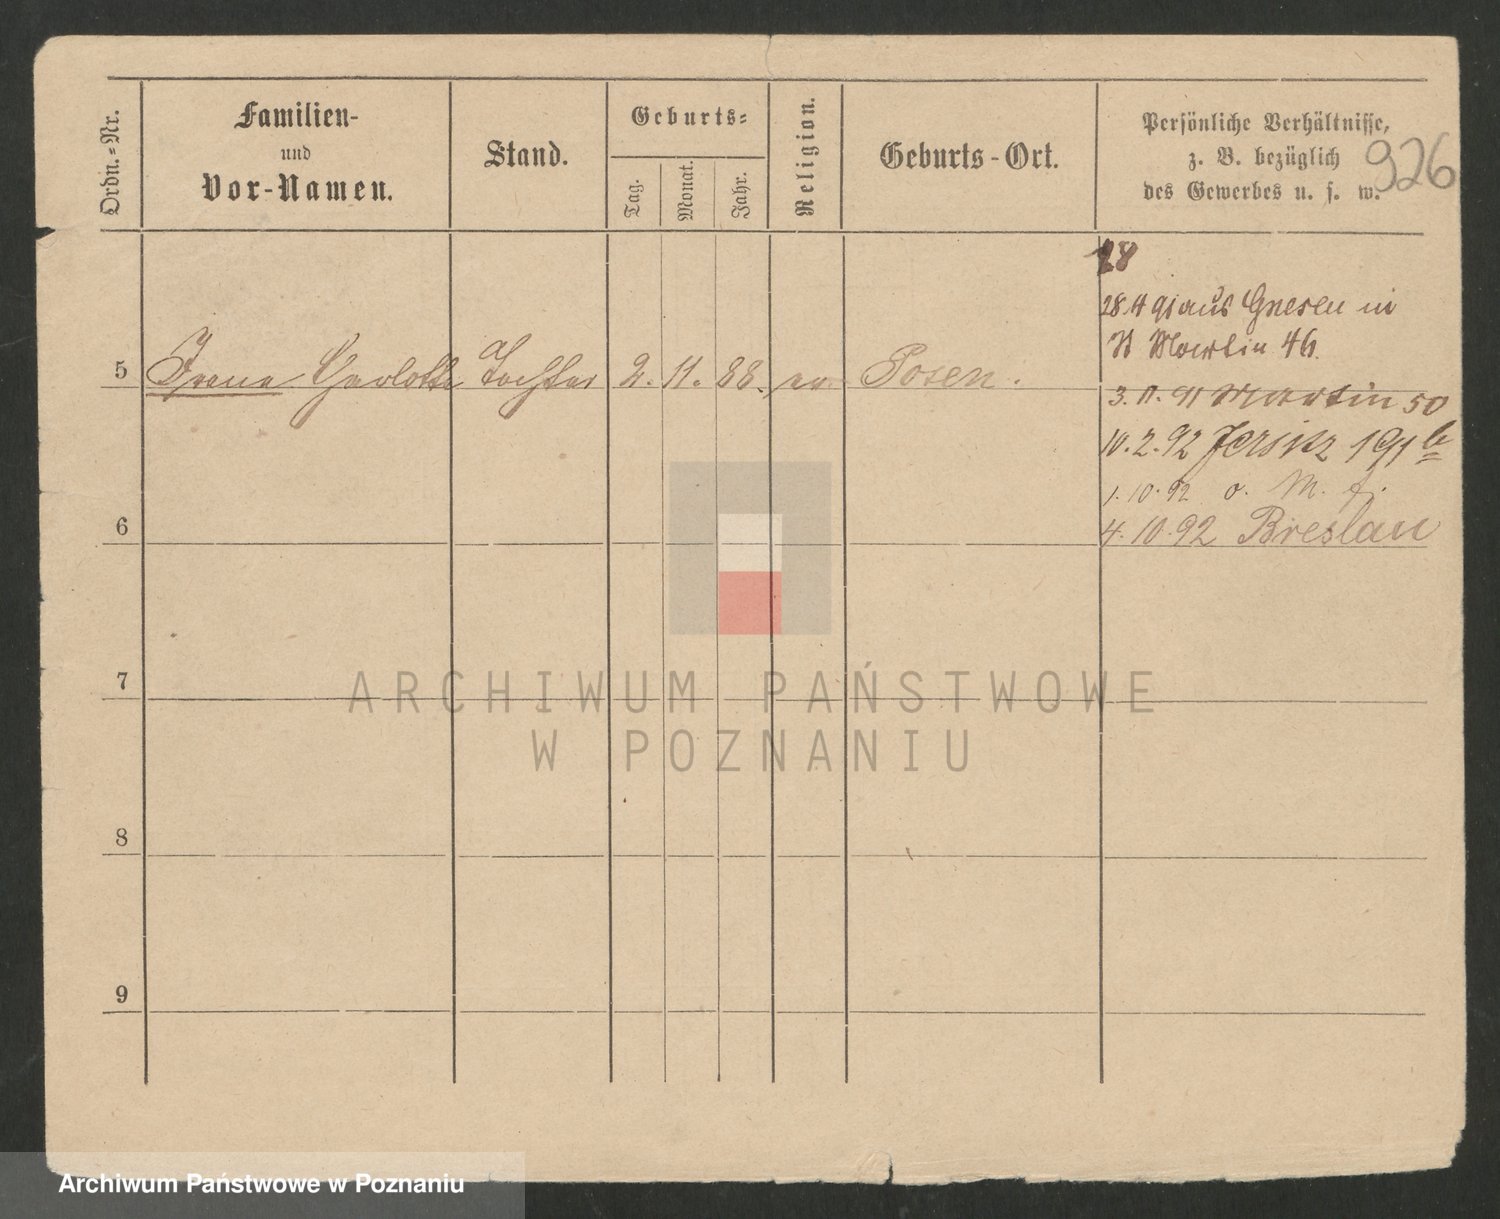 Ordn.-Nr.
Familien-
und
Vor-Namen.
Stand.
Geburts-
Tag.
Monat.
Jahr.
Religion.
Geburts-Ort.
Persönliche Verhältnisse,
z. B. bezüglich
des Gewerbes u. s. w.
926
28
28.4 91 aus Gnesen in
Martin 46.
5 Irene Charlotte Tochter 2. 11. 88. ev. Posen.
3. 11. 91 Martin 50
10. 2. 92 Jersitz 191 b
1. 10. 92 o. M. f.
6
4. 10. 92 Breslau
7
8
9
ARCHIWUM PAŃSTWOWE
W POZNANIU
Archiwum Państwowe w Poznaniu